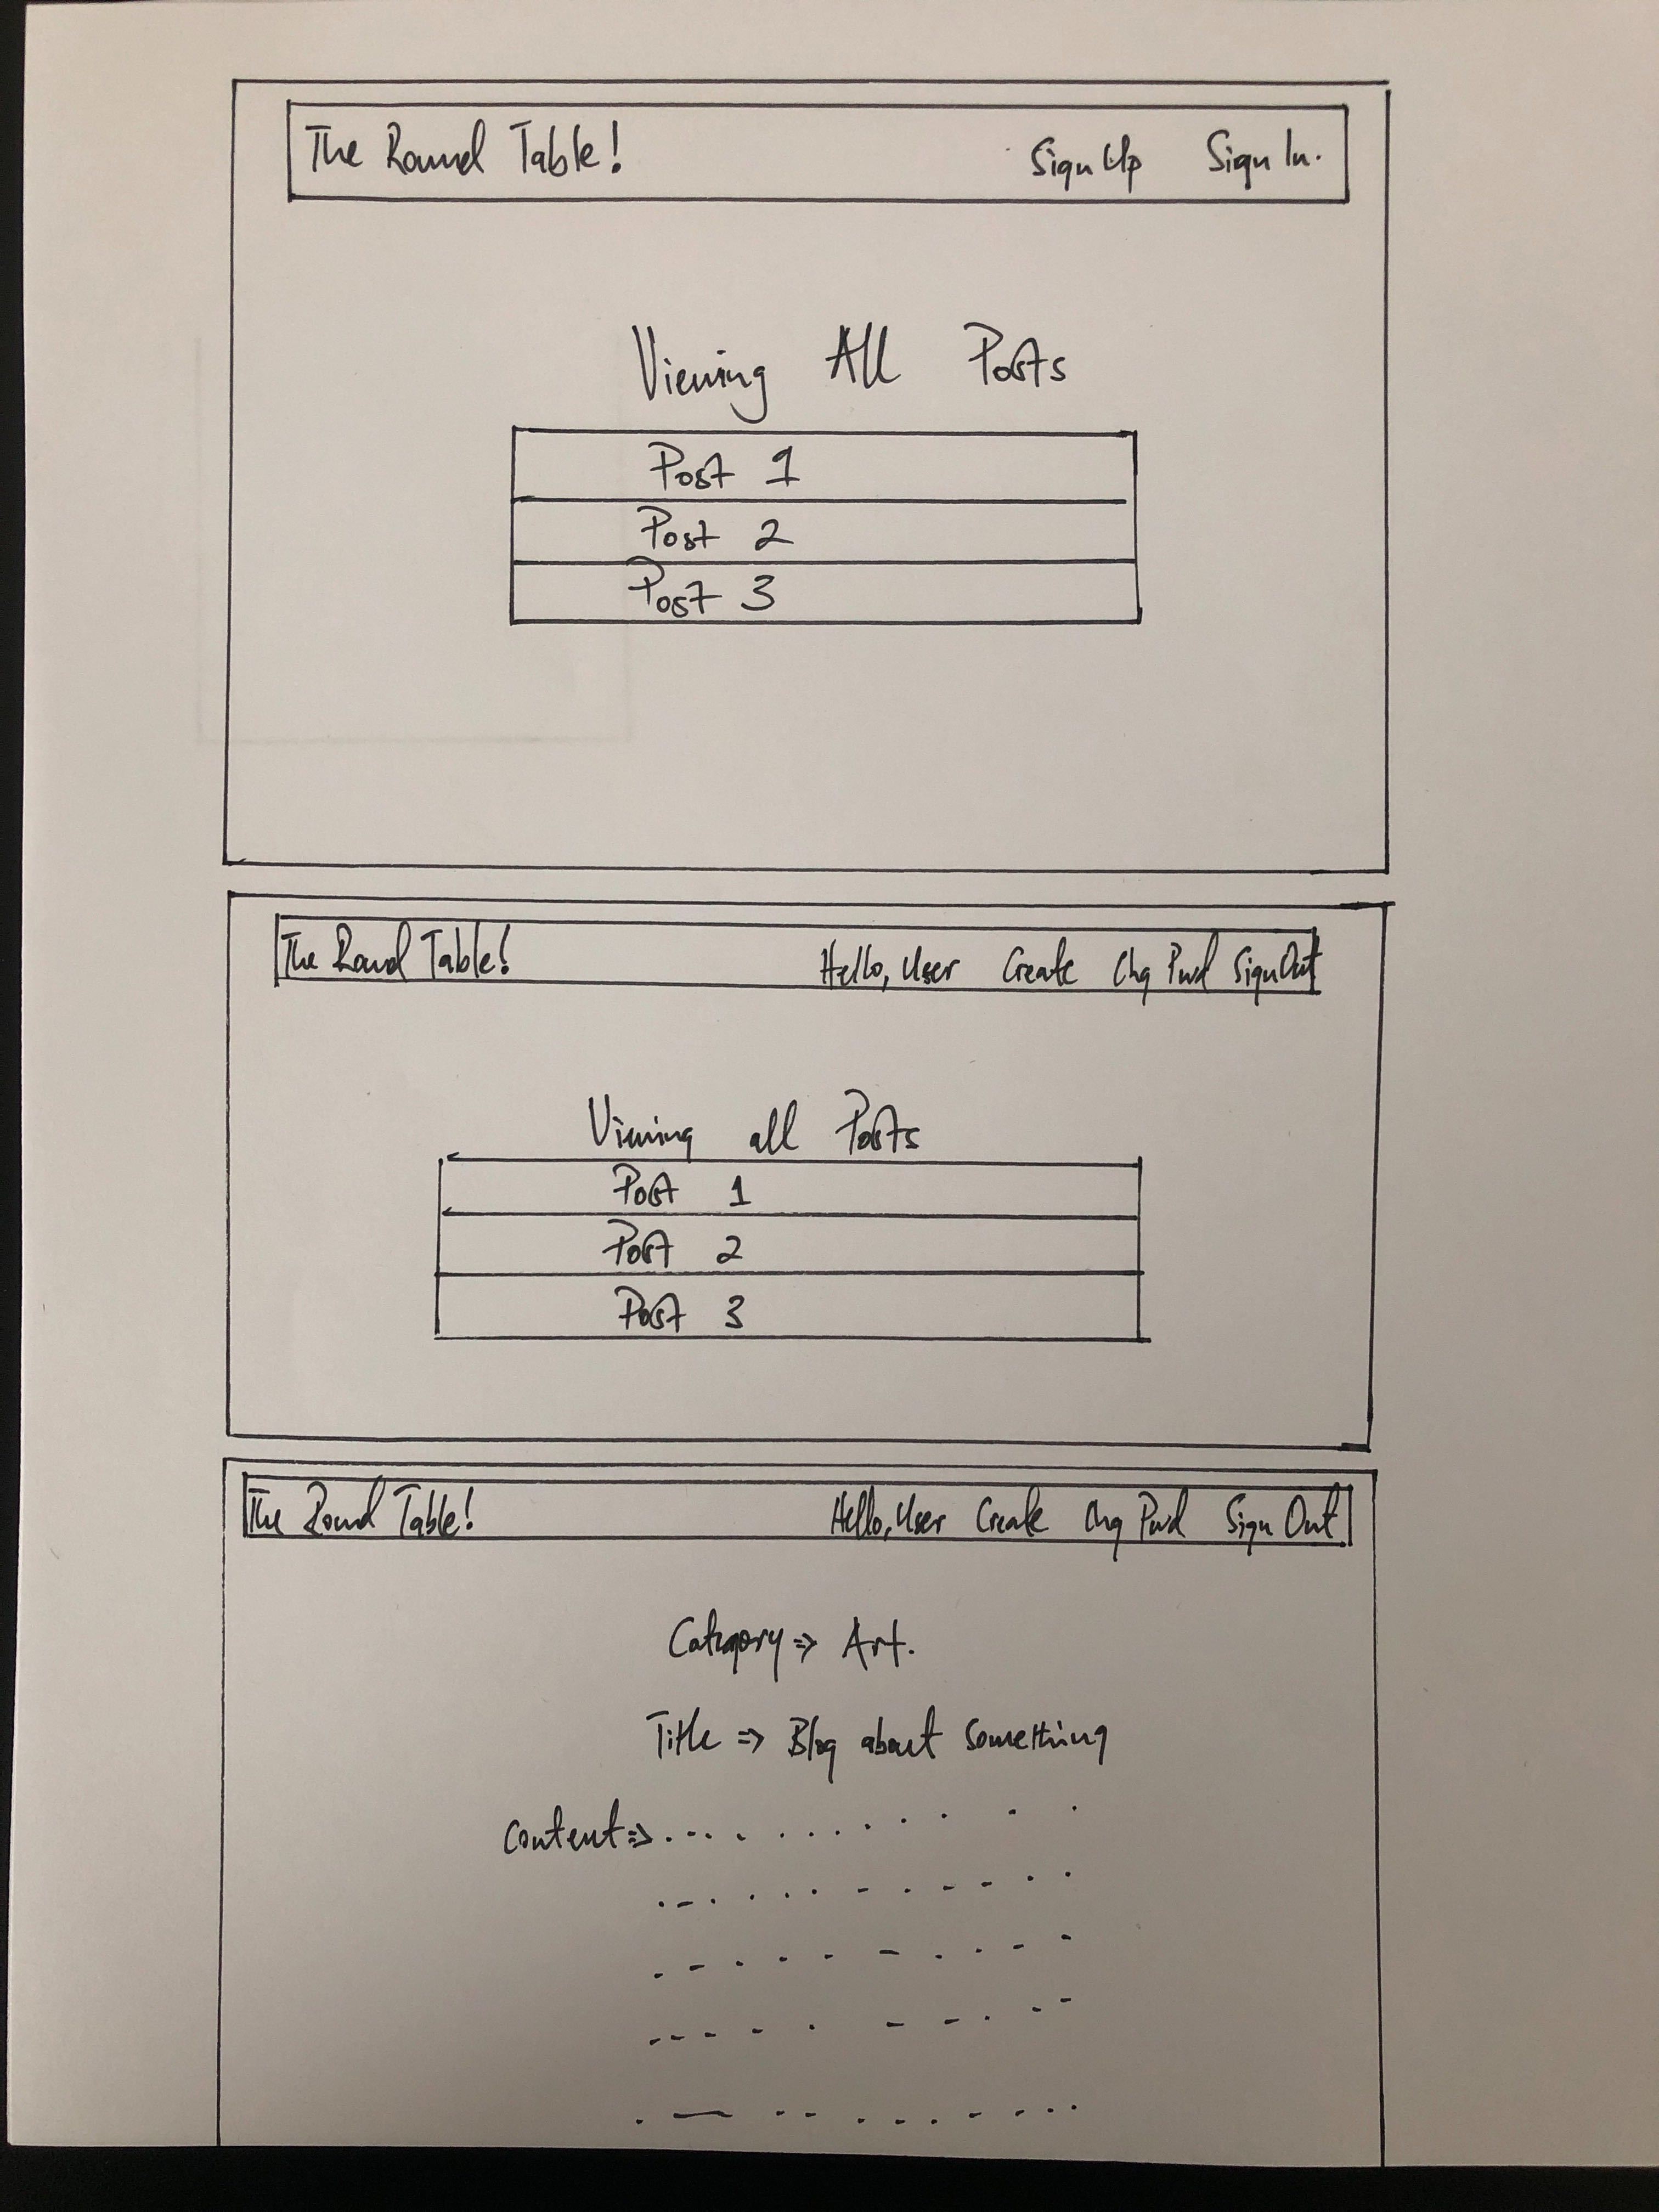 The Round Table! Sign Up Sign In.
Viewing All Posts
Post 1
Post 2
Post 3
The Round Table! Hello, User Create Chg Pwd Sign Out
Viewing all Posts
Post 1
Post 2
Post 3
The Round Table! Hello, User Create Chg Pwd Sign Out
Category => Art.
Title => Blog about something
Content =>